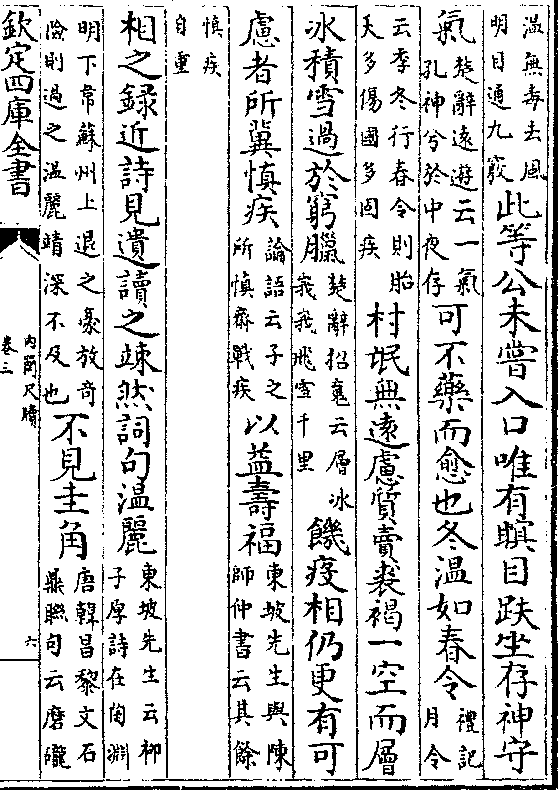 温無毒去風明目通九竅此等公未嘗入口唯有瞑目趺坐存神守
氣楚辭遠遊云一氣孔神兮於中夜存可不藥而愈也冬温如春令禮記月令
云季冬行春令則胎夭多傷國多固疾村氓無遠慮質賣裘褐一空而層
冰積雪過於窮臘楚辭招䰟云層冰峩峩飛雪千里饑疫相仍更有可
慮者所冀慎疾論語云子之所慎齋戰疾以益壽福東坡先生與陳師仲書云其餘
慎疾自重
相之録近詩見遺讀之竦然詞句温麗東坡先生云柳子厚詩在陶淵
明下韋蘇州上退之豪放奇險則過之温麗靖深不及也不見圭角唐韓昌黎文石鼎聯句云磨礲
欽定四庫全書
内簡尺牘
卷三
六